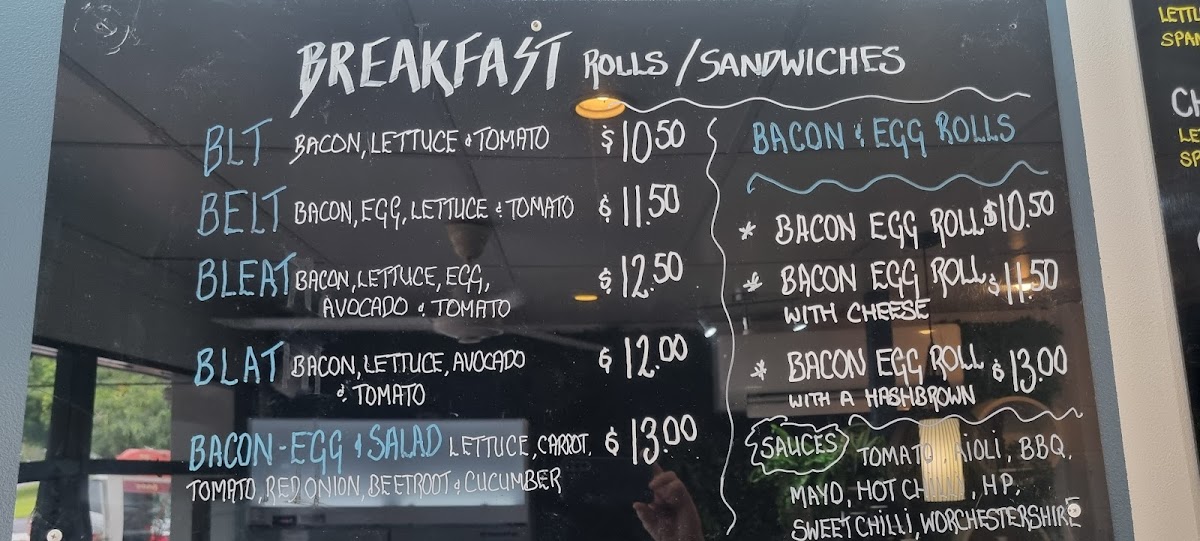 BREAKFAST ROLLS / SANDWICHES
BLT BACON, LETTUCE & TOMATO $10.50
BELT BACON, EGG, LETTUCE & TOMATO $11.50
BLEAT BACON, LETTUCE, EGG, $12.50
AVOCADO & TOMATO
BLAT BACON, LETTUCE, AVOCADO $12.00
& TOMATO
BACON-EGG & SALAD LETTUCE, CARROT, $13.00
TOMATO, RED ONION, BEETROOT & CUCUMBER
BACON & EGG ROLLS
* BACON EGG ROLL $10.50
* BACON EGG ROLL $11.50
WITH CHEESE
* BACON EGG ROLL $13.00
WITH A HASHBROWN
SAUCES TOMATO, AIOLI, BBQ,
MAYO, HOT , HP,
SWEET CHILLI, WORCHESTERSHIRE